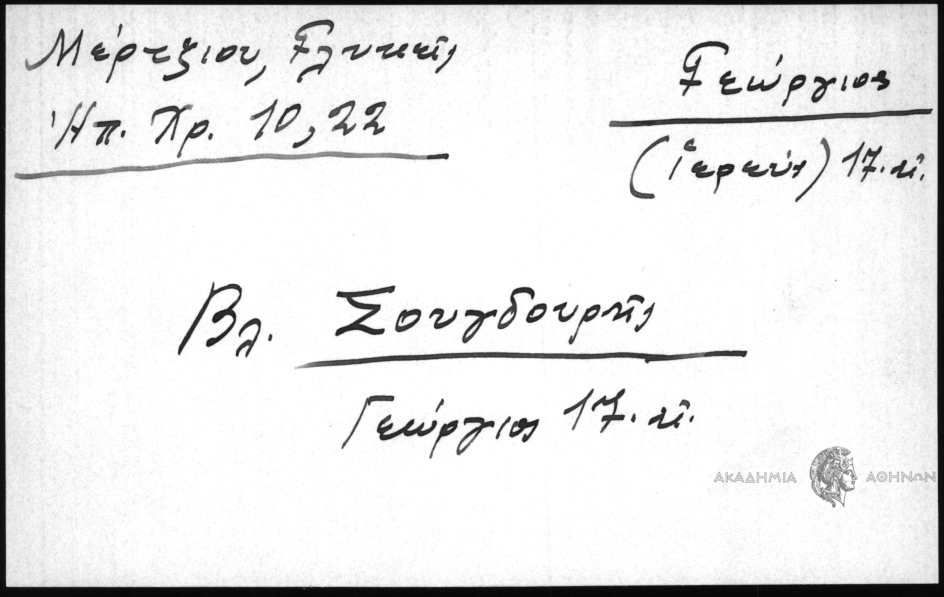 Μέρτζιου, Γλυκεῖς
Ἠπ. Χρ. 10, 22
Γεώργιος
(ἱερεύς) 17. αἰ.
Βλ. Σουγδουρῆς
Γεώργιος 17. αἰ.
ΑΚΑΔΗΜΙΑ ΑΘΗΝΩΝ